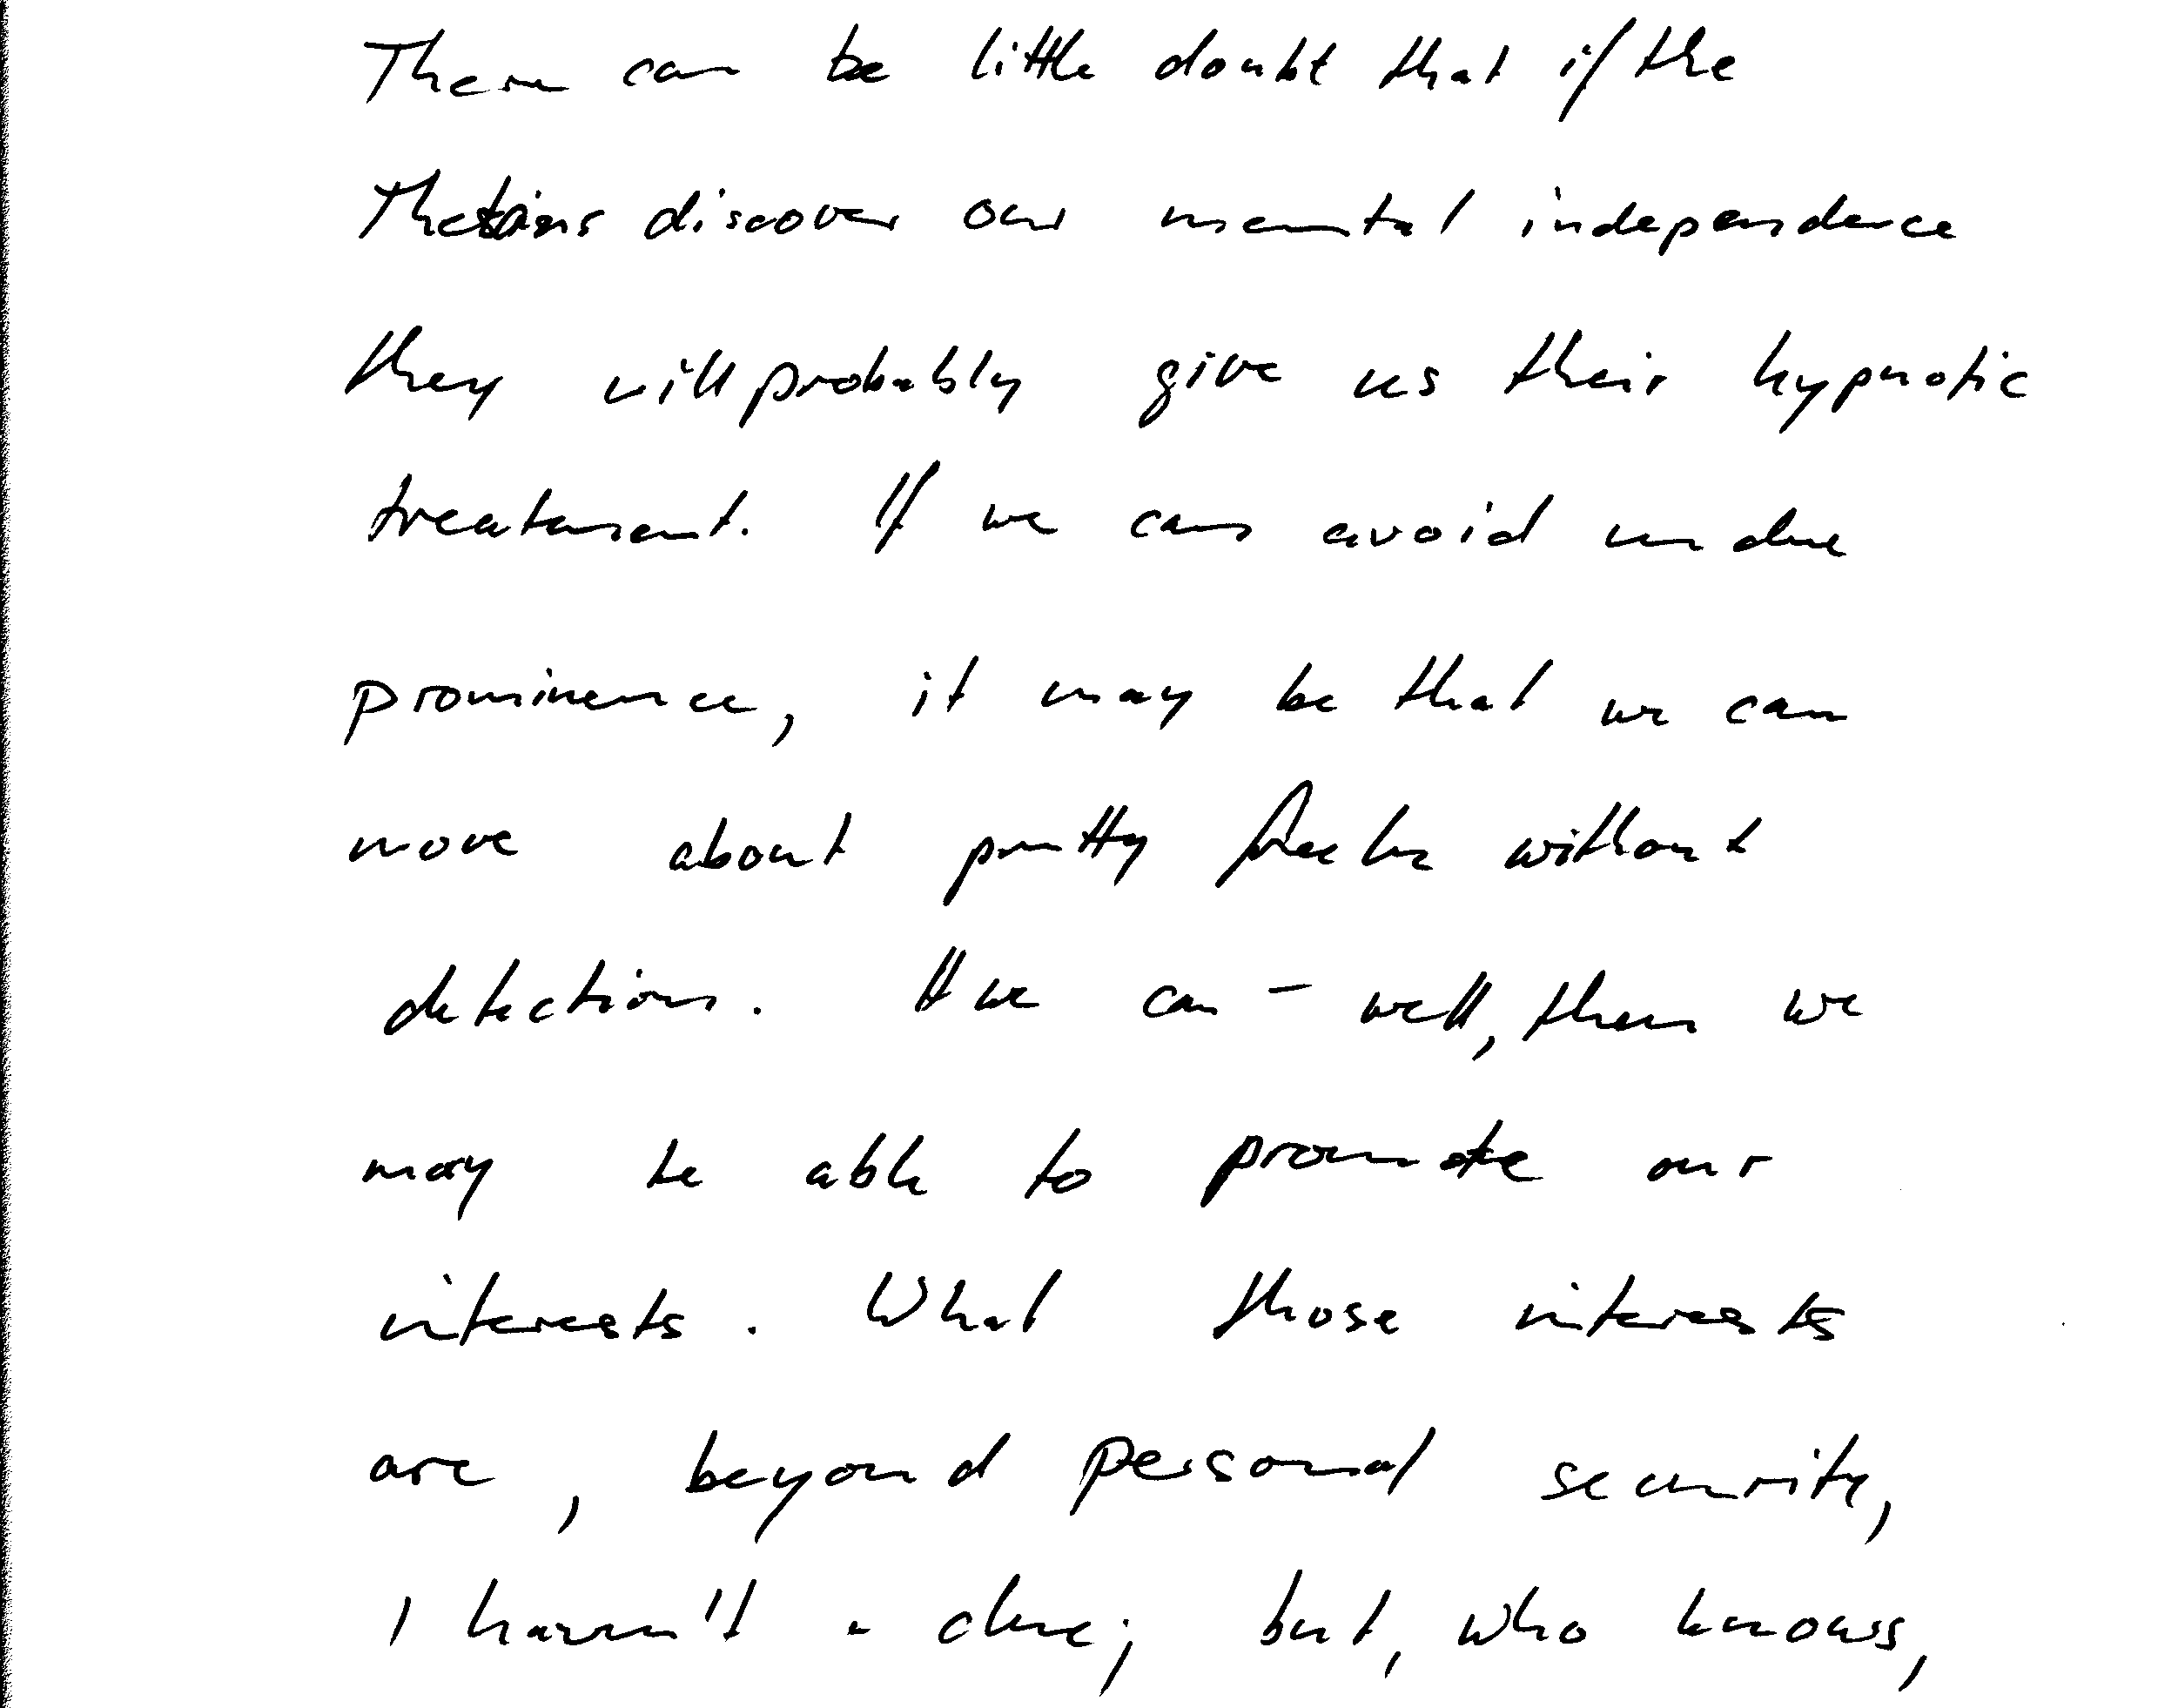 There can be little doubt that if the
Thetans discover our mental independence
they will probably give us their hypnotic
treatment. If we can avoid undue
prominence, it may be that we can
move about pretty freely without
detection. If we can – well, then we
may be able to promote our
interests. What those interests
are, beyond personal security,
I haven't a clue; but, who knows,